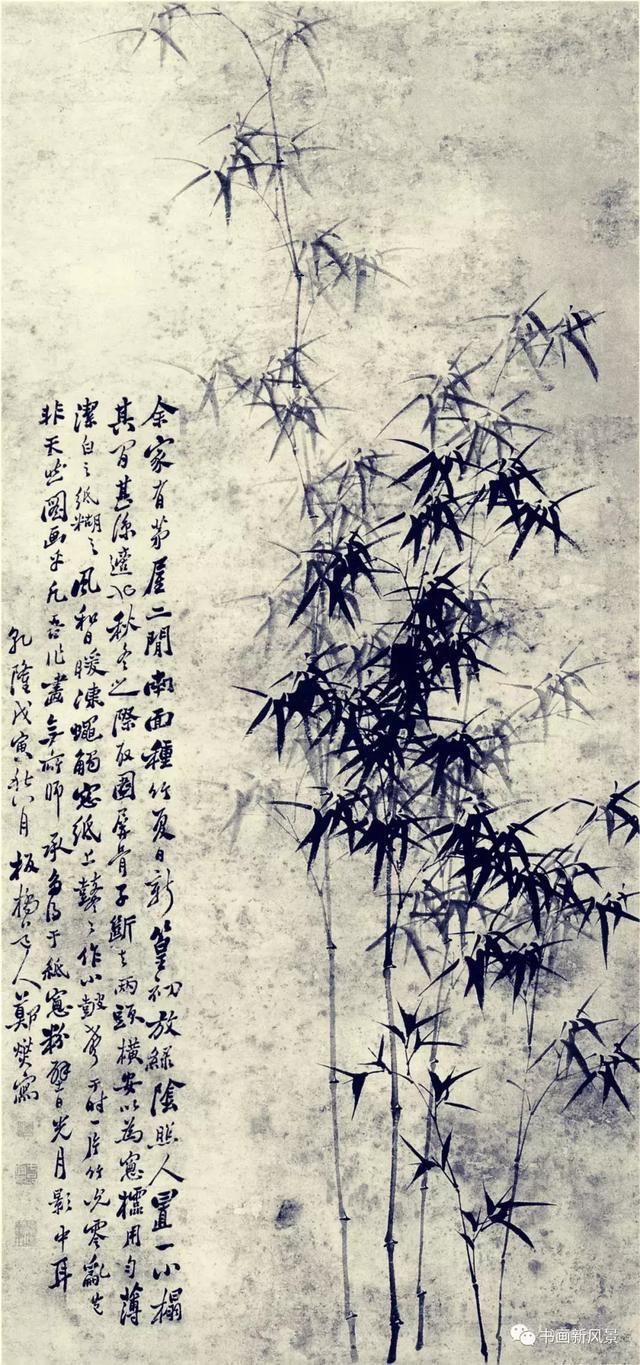 余家有茅屋二間南面種竹夏日新篁初放綠陰照人置一小榻
其間甚涼適也秋冬之際取圍屏骨子斷去兩頭橫安以為窗櫺用勻薄
潔白之紙糊之風和日暖凍蠅觸窗紙上鼕鼕作小鼓聲于時一片竹影零亂豈
非天然圖画乎凡吾作畫無所師承多得于紙窗粉壁日光月影中耳
乾隆戊寅秋八月板橋道人鄭燮寫
书画新风景